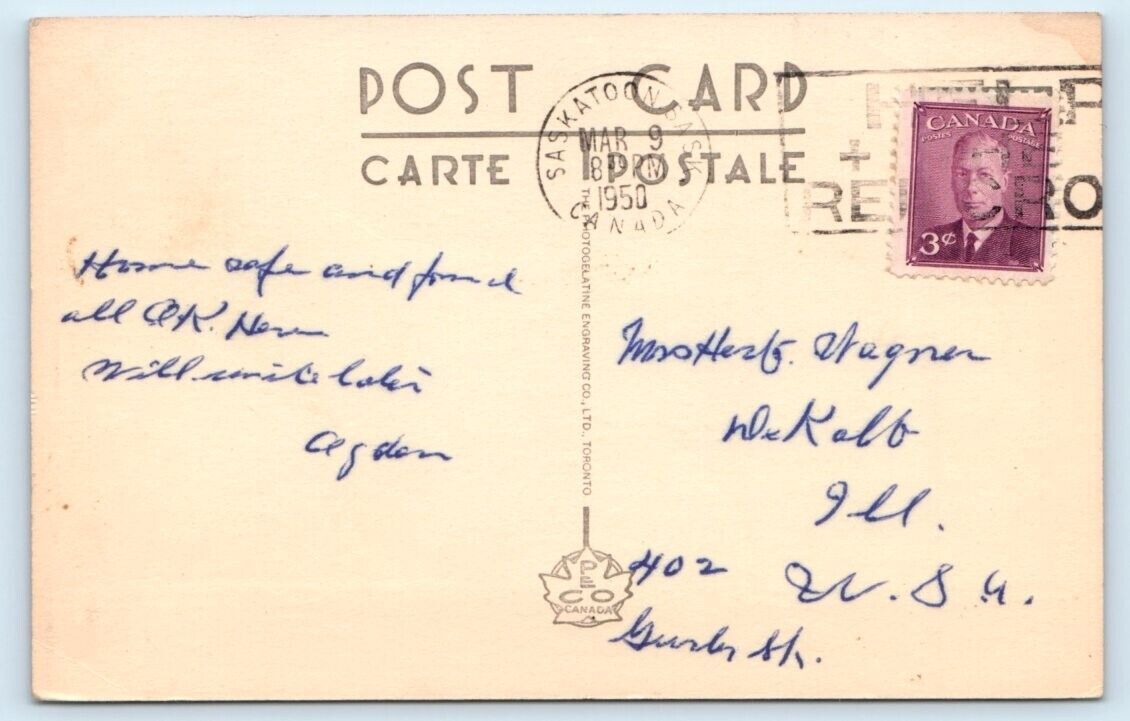 POST CARD
CARTE POSTALE
SASKATOON SASK.
MAR 9
8 PM
1950
CANADA
HELP
+
RED CROSS
CANADA
POSTES POSTAGE
3¢
THE PHOTOGELATINE ENGRAVING CO., LTD., TORONTO
PECO
CANADA
Home safe and found
all OK. Here
Will write later
Ogden
Mrs Herb. Wagner
DeKalb
Ill.
402 U.S.A.
Gurler St.